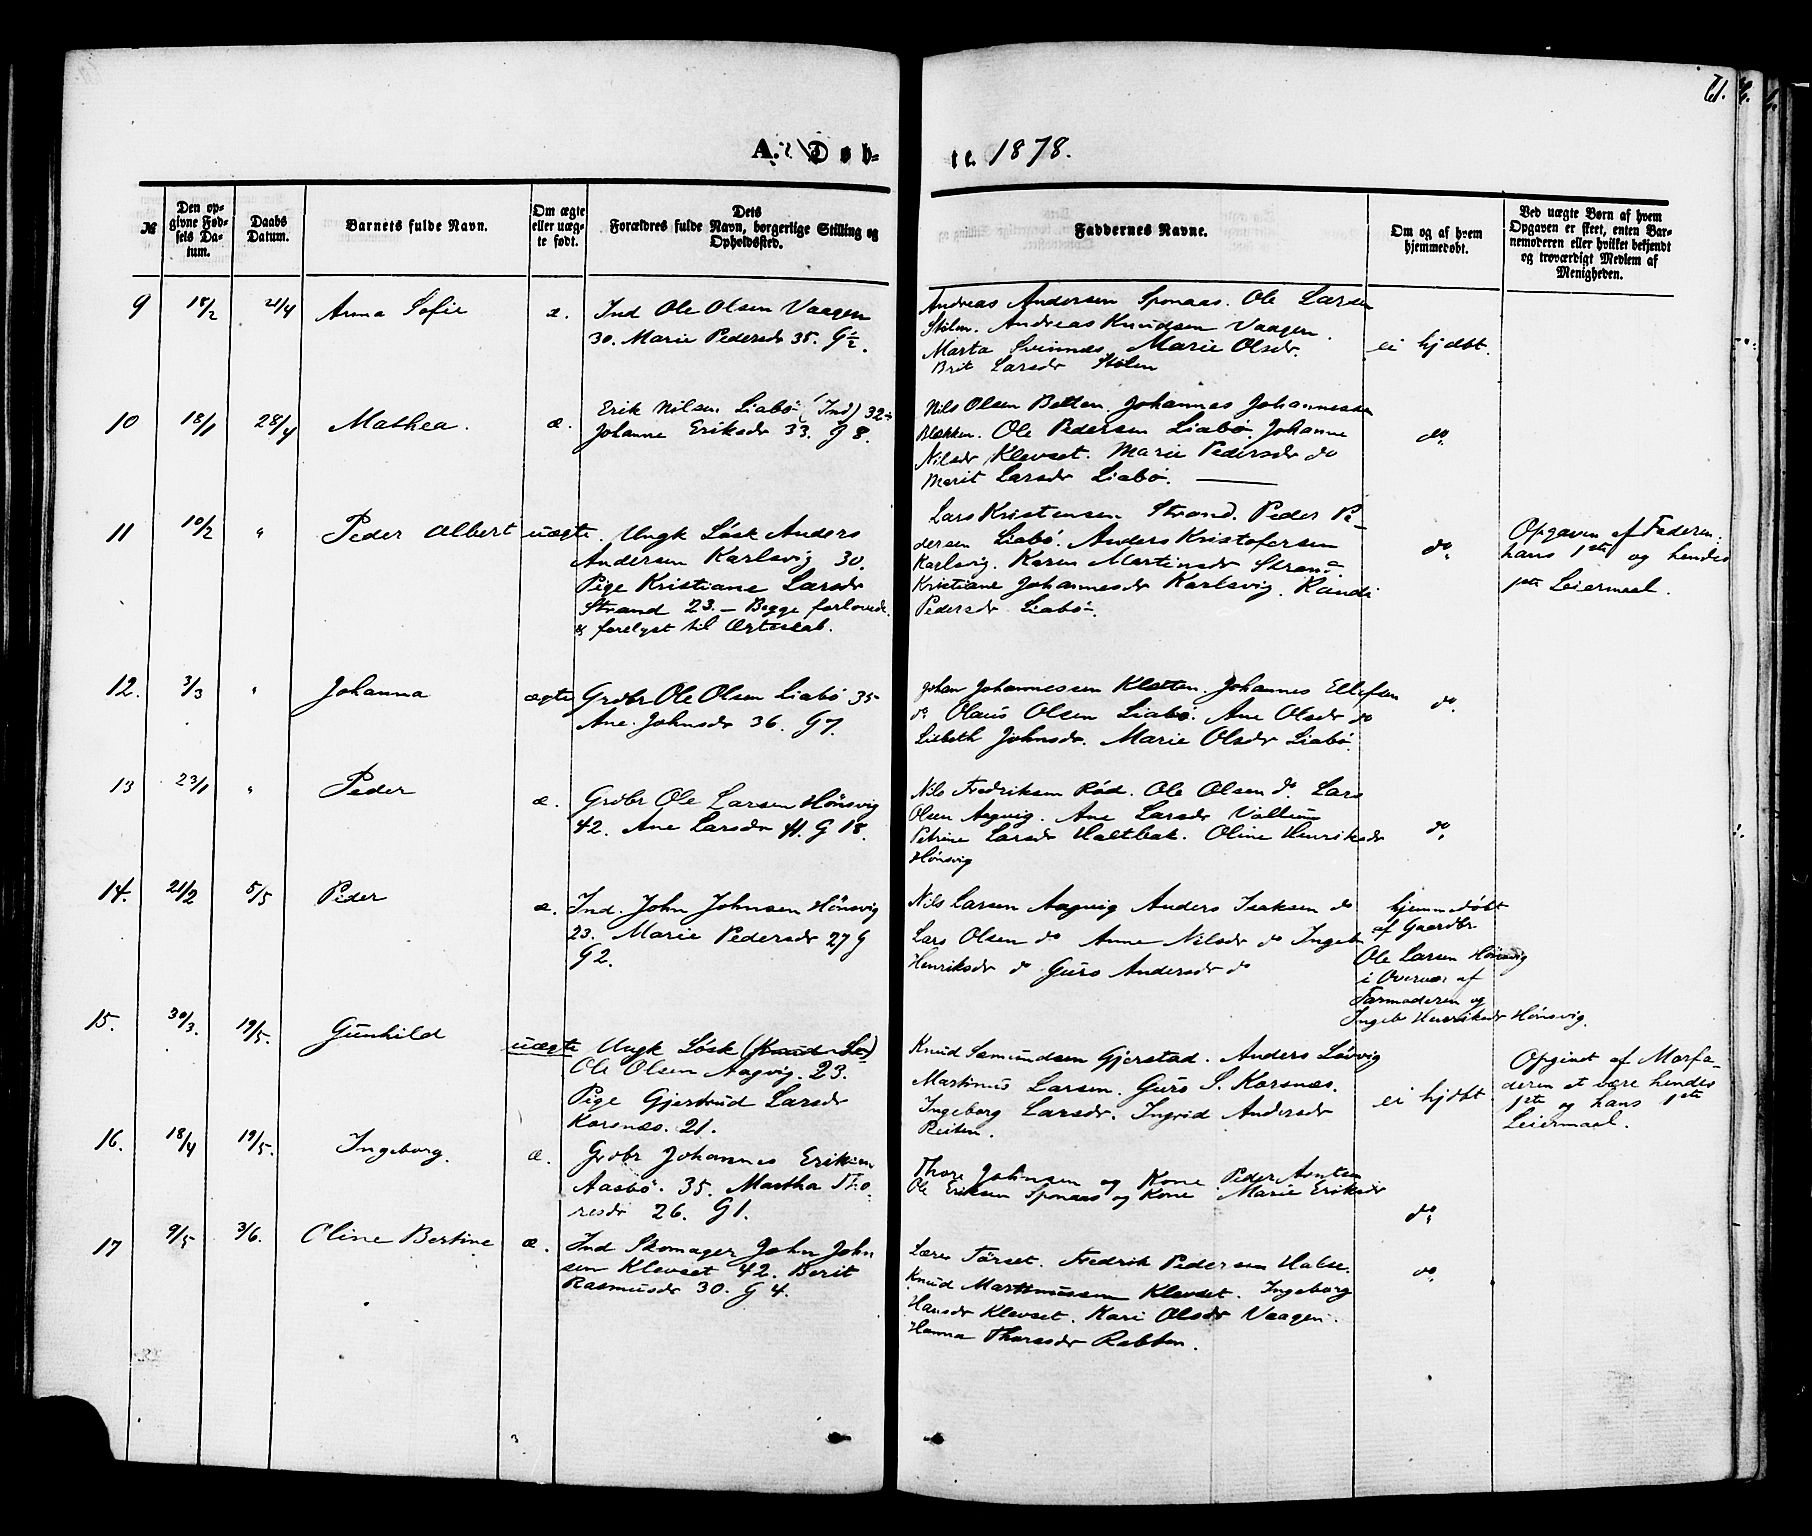 61.
A. Døb-
te. 1878.
№
Den op-
givne Fød-
sels Da-
tum.
Daabs
Datum.
Barnets fulde Navn.
Om ægte
eller uæg-
te født.
Dets
Forældres fulde Navn, borgerlige Stilling og
Opholdssted.
Faddernes Navne.
Om og af hvem
hjemmedøbt.
Ved uægte Børn af hvem
Opgaven er skeet, enten Bar-
nemoderen eller hvilket bekjendt
og troværdigt Medlem af
Menigheden.
9 18/2 21/4 Anna Sofie æ.
Ind Ole Olsen Vaagen
30. Marie Pedersdr 35. G ½.
Andreas Andersen Sponaas. Ole Larsen
Stölen. Andreas Knudsen Vaagen.
Marta Svinnes. Marie Olsdr.
Brit Larsdr Stölen
ei hjdbt.
10 18/1 28/4 Mathea. æ.
Erik Nilsen Liabö (Ind) 32
Johanne Eriksdr 33. G 8.
Nils Olsen Botten. Johannes Johannessen
Blekken. Ole Pedersen Liabö. Johanne
Nilsdr Klevset. Marie Pedersdr do
Marit Larsdr Liabö.
do.
11 10/2 " Peder Albert uægte.
Ungk Løsk Anders
Andersen Karlsvig 30.
Pige Kristiane Larsdr
Strand 23. – Begge forlovede
& forelyst til Ægteskab.
Lars Kristensen Strand. Peder Pe-
dersen Liabö. Anders Kristofersen
Karlsvig. Karen Martinsdr Strand.
Kristiane Johannesdr Karlsvig. Randi
Pedersdr Liabö.
do.
Opgaven af Faderen:
hans 1ste og hendes
1ste Leiermaal.
12. 3/3 " Johanna ægte
Grdbr Ole Olsen Liabö 35
Ane Johnsdr 36. G 7.
Johan Johannessen Kletten. Johannes Ellefsen
do Olaus Olsen Liabö. Ane Olsdr do
Lisbeth Johnsdr. Marie Olsdr Liabö.
do.
13 23/1 " Peder æ.
Grdbr Ole Larsen Hönsvig
42. Ane Larsdr 41. G 18.
Nils Fredriksen Rød. Ole Olsen do. Lars
Olsen Aagvig. Ane Larsdr Vullum
Petrine Larsdr Haltbak. Oline Henriksdr
Hönsvig
do.
14. 21/2 5/5 Peder æ.
Ind. John Johnsen Hönsvig
23. Marie Pedersdr 27 G
G 2.
Nils Larsen Aagvig Anders Isaksen do
Lars Olsen do Anne Nilsdr do Ingeb
Henriksdr do Guro Andersdr do
hjemmedøbt
af Gaardbr
Ole Larsen Hönsvig
i Overvær af
Farmoderen og
Ingeb Henriksdr Hönsvig.
15. 30/3. 19/5. Gunhild uægte
Ungk Løsk (Knud La)
Ole Olsen Aagvig. 23.
Pige Gjertrud Larsdr
Korsnæs. 21.
Knud Samundsen Gjerstad. Anders Lövvig
Martinus Larsen. Guro S. Korsnæs.
Ingeborg Larsdr. Ingrid Andersdr
Reiten.
ei hjdbt.
Opgivet af Morfa-
deren at være hendes
1ste og hans 1ste
Leiermaal.
16. 18/4 19/5. Ingeborg. æ.
Grdbr Johannes Eriksen
Aasbö. 35. Martha Tho-
resdr 26. G 1.
Thore Johnsen og Kone Peder Arntsen
Ole Eriksen Sponaas og Kone Marie Eriksdr
do.
17 9/5 3/6. Oline Bertine æ.
Ind Skomager John John
sen Klevset 42. Berit
Rasmusdr 30. G 4.
Lærer Törset. Fredrik Pedersen Halse.
Knud Martinussen Klevset. Ingeborg
Hansdr Klevset. Kari Olsdr Vaagen.
Hanna Thoresdr Rabben.
do.